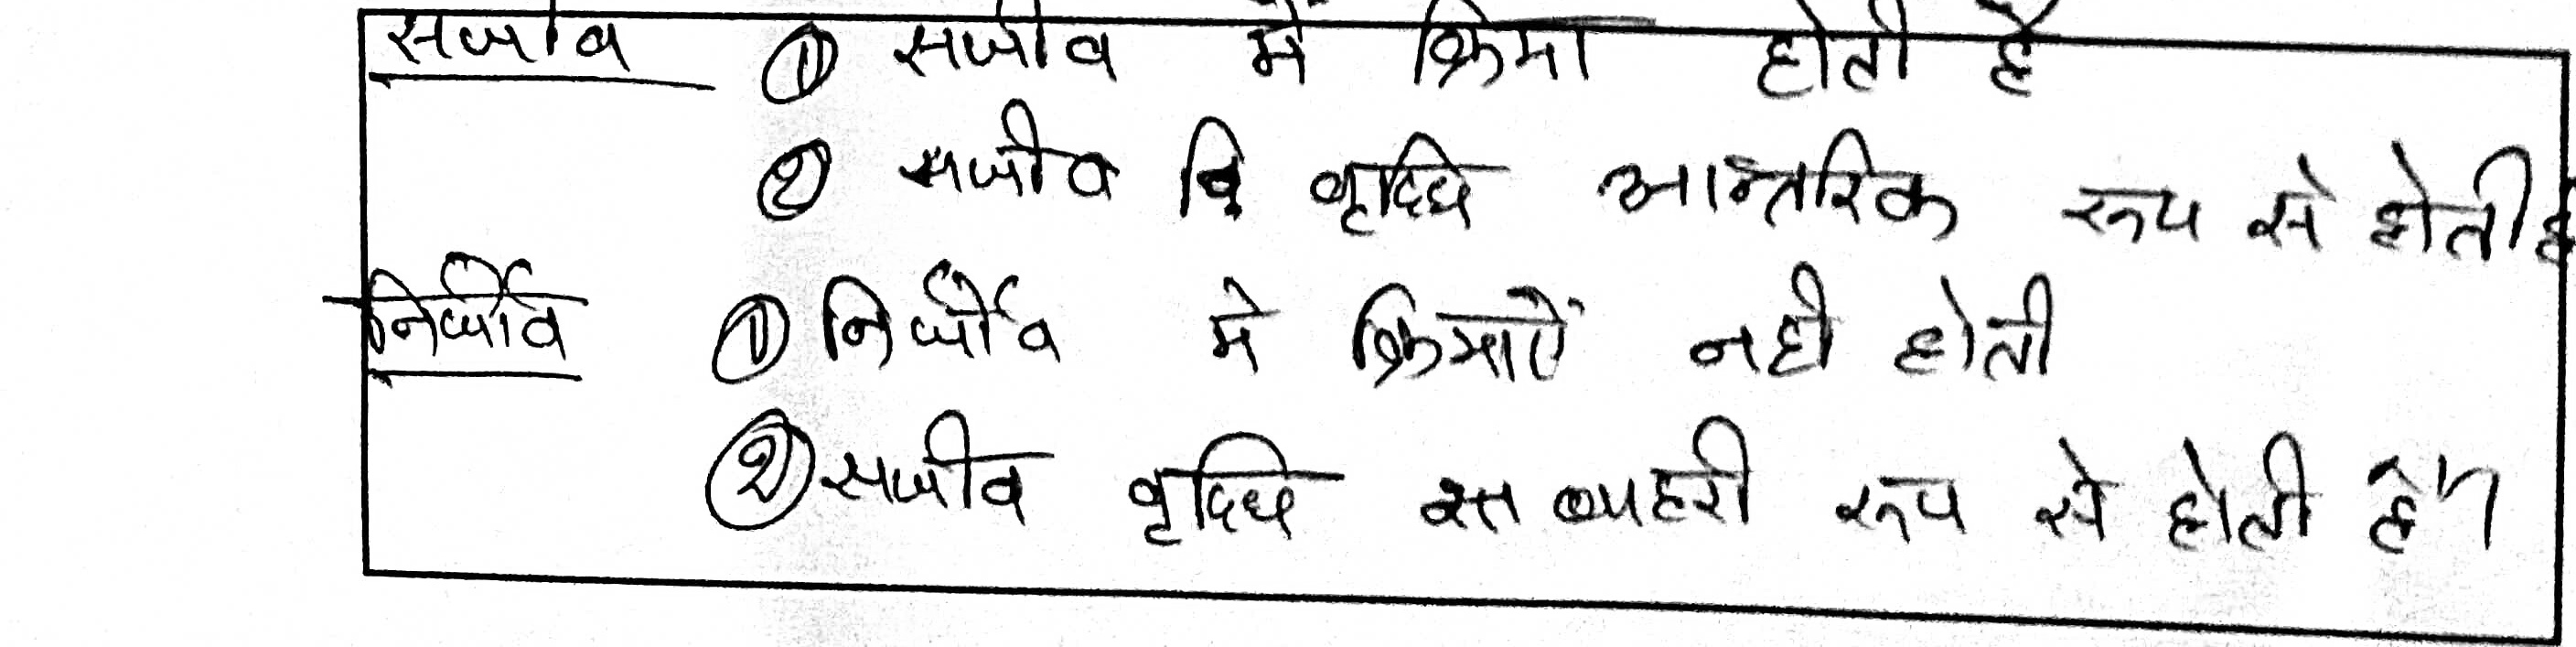 सजीव ① सजीव में क्रिया होती है
② सजीव कि वृद्धि आन्तरिक रूप से होती है
निर्जीव ① निर्जीव मे क्रियाऐं नही होती
② सजीव वृद्धि रूप से होती हैं।